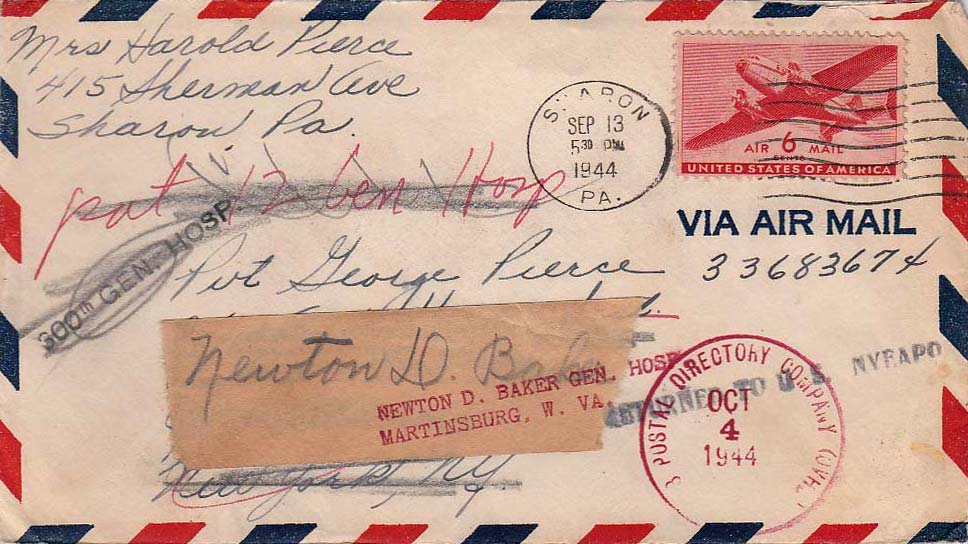 Mrs Harold Pierce
415 Sherman Ave
Sharon Pa.
SHARON
SEP 13
5 30 PM
1944
PA.
AIR 6 MAIL
CENTS
UNITED STATES OF AMERICA
pat 12 Gen Hosp
300th GEN. HOSP
VIA AIR MAIL
Pvt George Pierce
33683674
Newton D. Baker
NEWTON D. BAKER GEN. HOSP
MARTINSBURG, W. VA.
RETURNED TO U. S. NYFAPO
3 POSTAL DIRECTORY COMPANY (OVHD
OCT
4
1944
New York, NY.